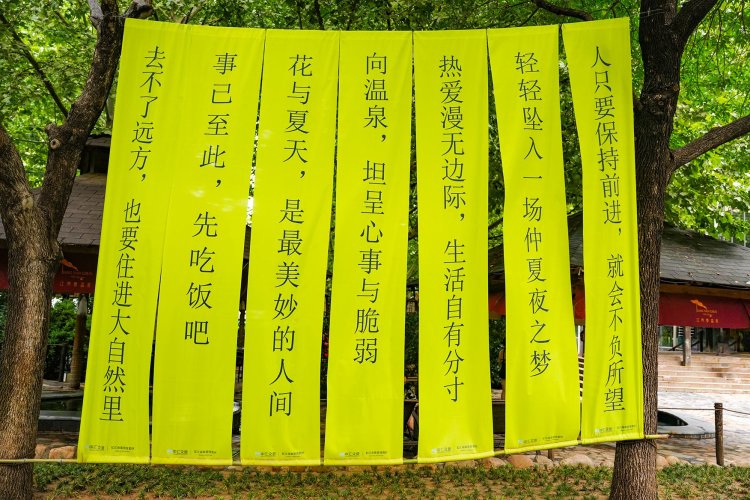 人只要保持前进，就会不负所望
轻轻坠入一场仲夏夜之梦
热爱漫无边际，生活自有分寸
向温泉，坦呈心事与脆弱
花与夏天，是最美妙的人间
事己至此，先吃饭吧
去不了远方，也要住进大自然里